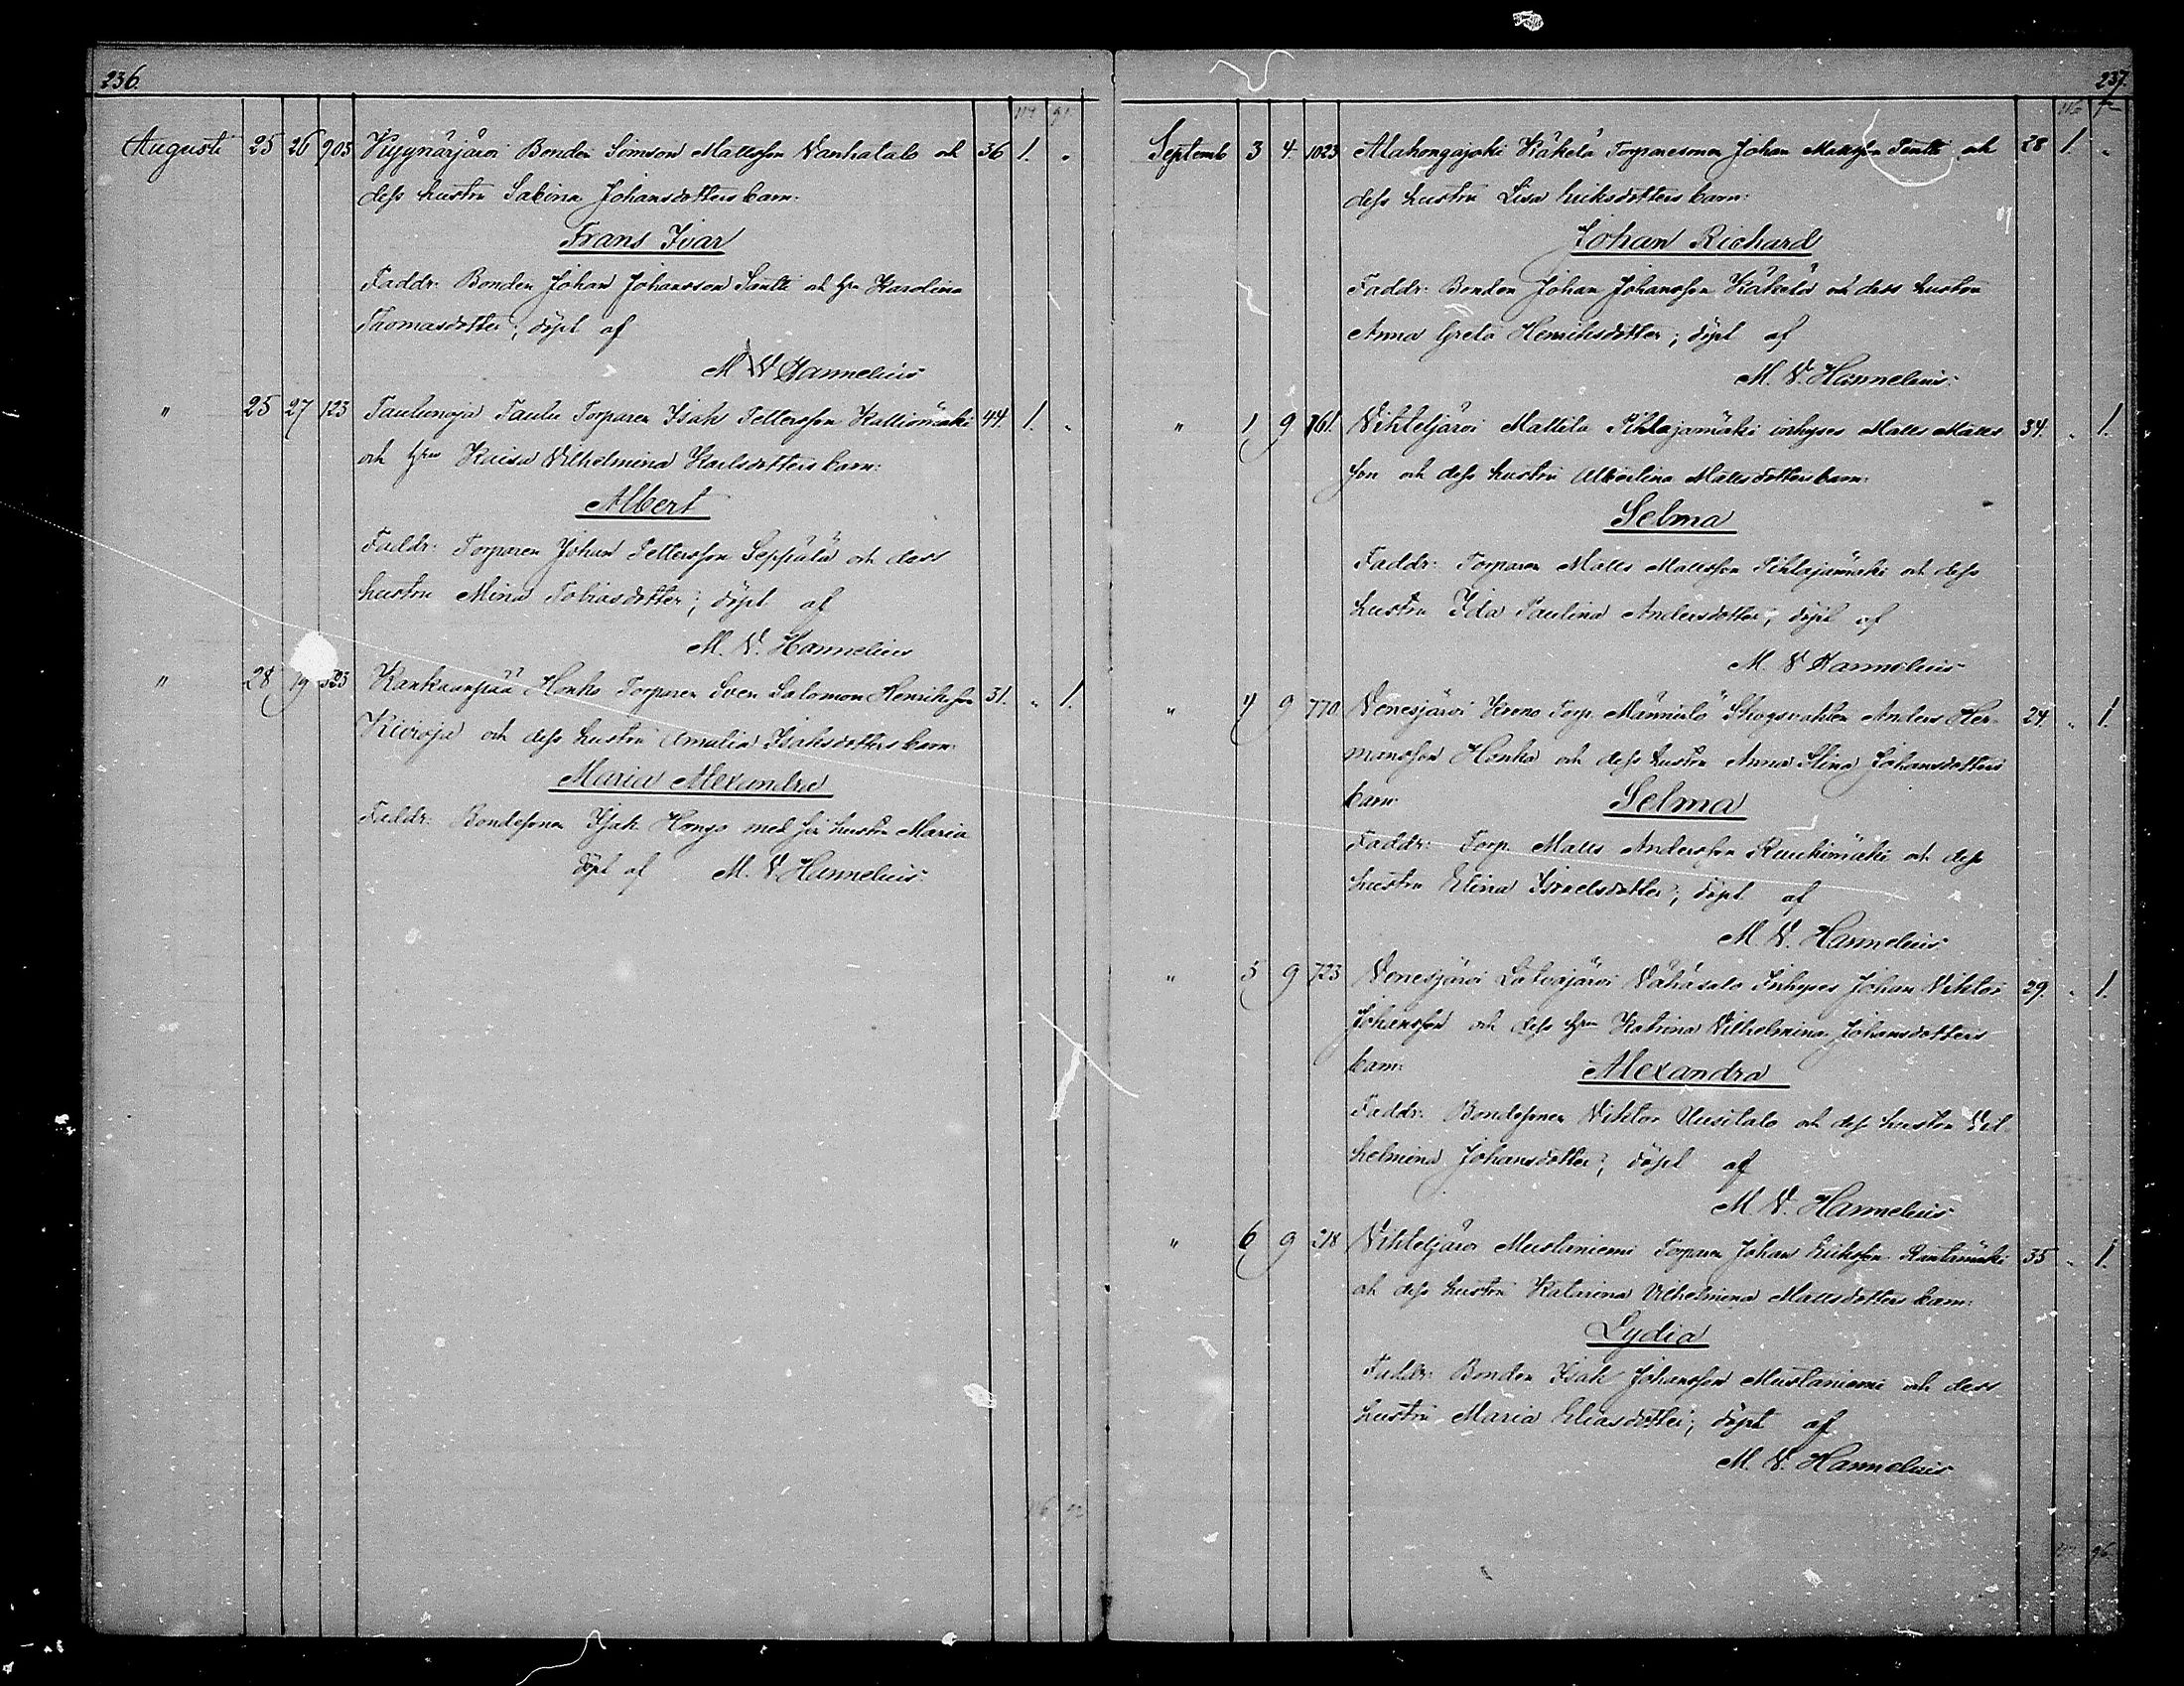 236.
Augusti 25 26 903 Vijynärjärvi Bonden Simson Mattsson Vanhatalo och 36 1. "
dess hustru Sabina Johansdotters barn:
Frans Ivar
Faddr: Bonden Johan Johansson Santti och h:u Karolina
Thomasdotter; döpt af
M V Hannelius
" 25 27 123 Paulunoja Paulu Torparen Isak Pettersson Kalliomäki 44. 1. "
och h:u Kaisa Vilhelmina Karlsdotters barn:
Albert
Faddr: Torparen Johan Pettersson Seppälä och dess
hustru Mina Tobiasdotter; döpt af
M. V. Hannelius
" 28 19 523 Kankaanpää Honko Torparen Sven Salomon Henriksson 31. " 1.
Kivioja och dess hustru Amalia Isaksdotters barn:
Maria Alexandra
Faddr: Bondesonen Isak Hongo med hustru Maria
döpt af M. V. Hannelius.
237.
Septemb 3 4. 1023 Alahongajoki Käkelä Torparesonen Johan Mattsson Pentti och 28 1. "
dess hustru Lisa Eriksdotters barn:
Johan Richard
Faddr: Bonden Johan Johansson Käkelä och dess hustru
Anna Greta Henriksdotter; döpt af
M. V. Hannelius.
" 1 9 761. Vihteljärvi Mattila Pihlajamäki inhyses Matts Matts- 34. " 1.
son och dess hustru Albertina Mattsdotters barn:
Selma
Faddr: Torparen Matts Mattsson Pihlajamäki och dess
hustru Ida Paulina Andersdotter; döpt af
M. V Hannelius
" 4 9 770 Venesjärvi Keino Torp. Männistö Skogsvakten Anders Her- 24. " 1.
mansson Honka och dess hustru Anna Stina Johansdotters
barn: Selma
Faddr: Torp. Matts Andersson Raukomäki och dess
hustru Elina Israelsdotter; döpt af
M. V. Hannelius.
" 5 9 723 Venesjärvi Latvajärvi Vähäsalo Inhyses Johan Viktor 29. " 1.
Johansson och dess h:u Katrina Vilhelmina Johansdotters
barn: Alexandra
Faddr: Bondesonen Viktor Uusitalo och dess hustru Vil-
helmina Johansdotter; döpt af
M. V. Hannelius
" 6 9 218 Vihteljärvi Mustaniemi Torparen Johan Eriksson Rantamäki 35 " 1.
och dess hustru Katarina Vilhelmina Mattsdotters barn:
Lydia
Faddr: Bonden Isak Johansson Mustaniemi och dess
hustru Maria Eliasdotter; döpt af
M. V. Hannelius